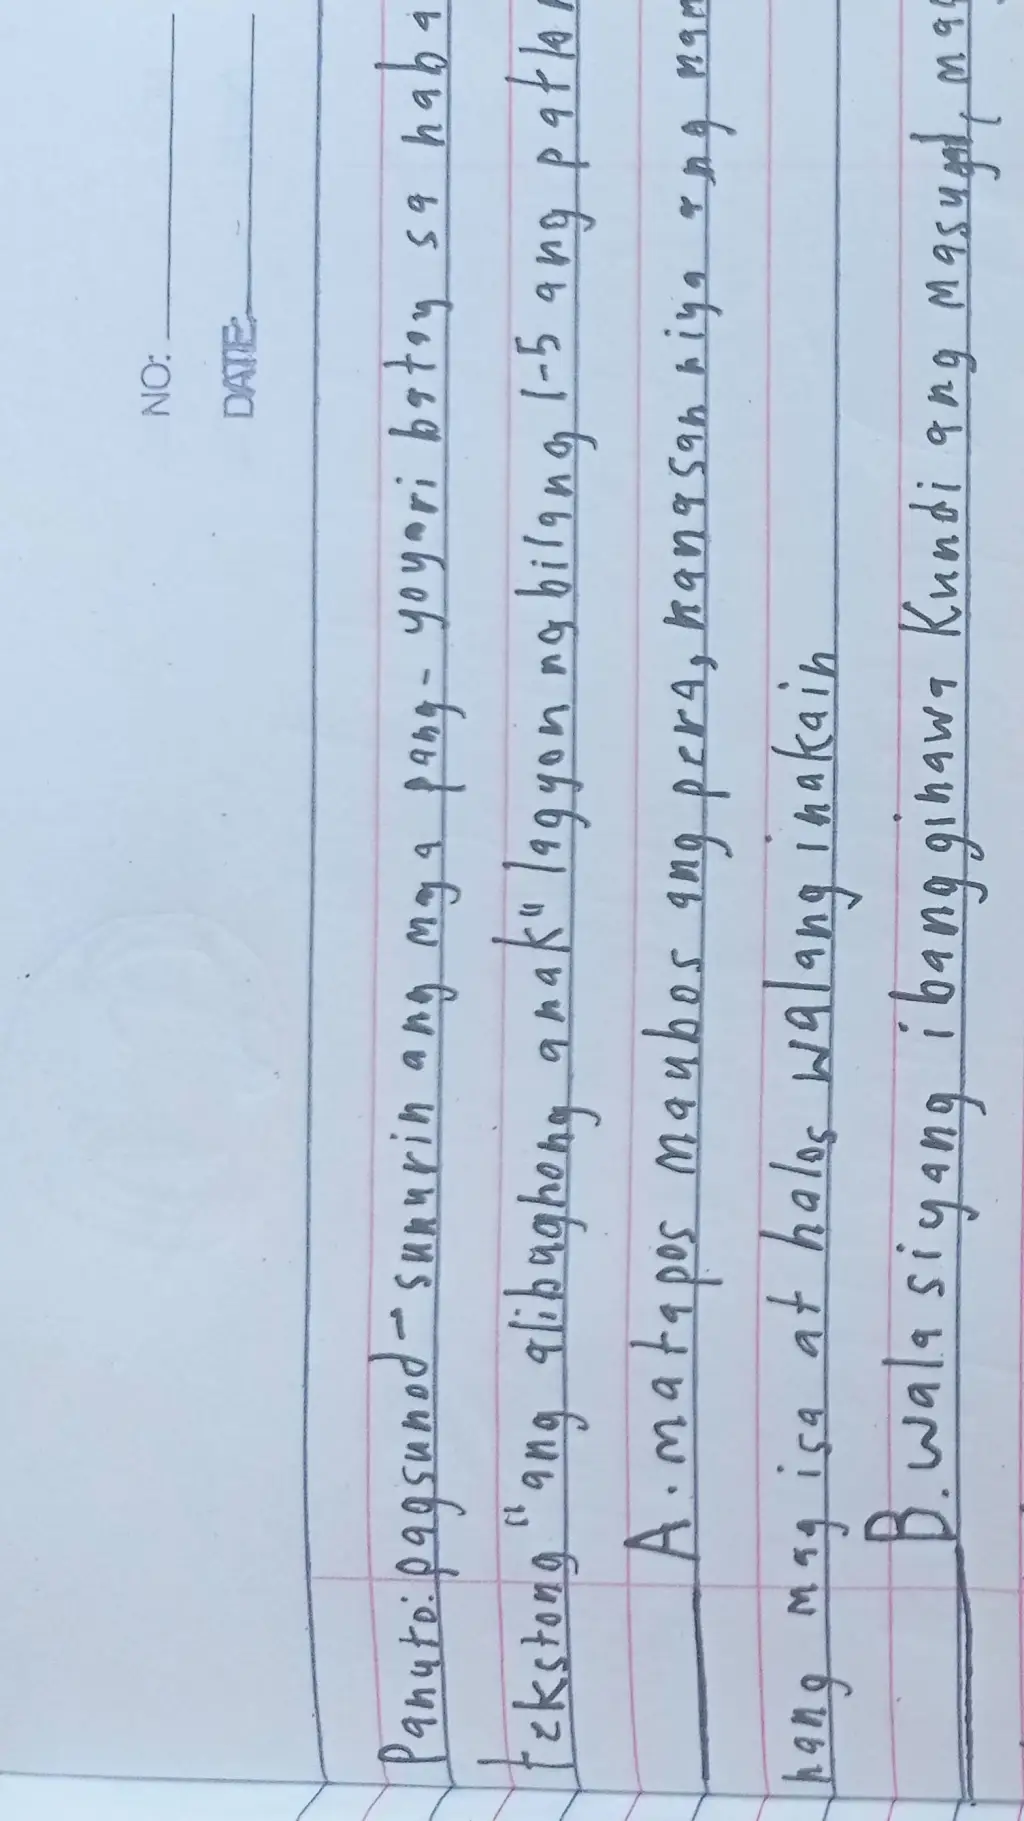 NO:
DATE:
Panuto: pagsunod-sunurin ang mga pang-yayari batay sa haba
tekstong "ang alibughang anak" lagyan ng bilang 1-5 ang patla
A. matapos maubos ang pera, nanasan niya ang mam
hang mag isa at halos walang inakain
B. wala siyang ibang ginawa Kundi ang